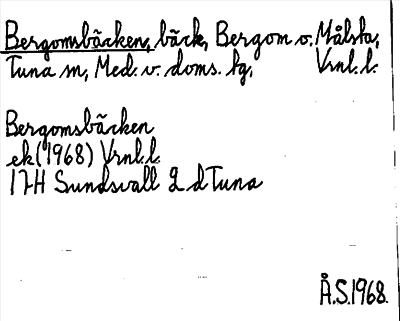 Bergomsbäcken, bäck, Bergom o. Målsta,
Tuna sn, Med. v. doms. hg, Vrnl. l.
Bergomsbäcken
ek (1968) Vrnl. l.
17H Sundsvall 2 d Tuna
Å.S. 1968.